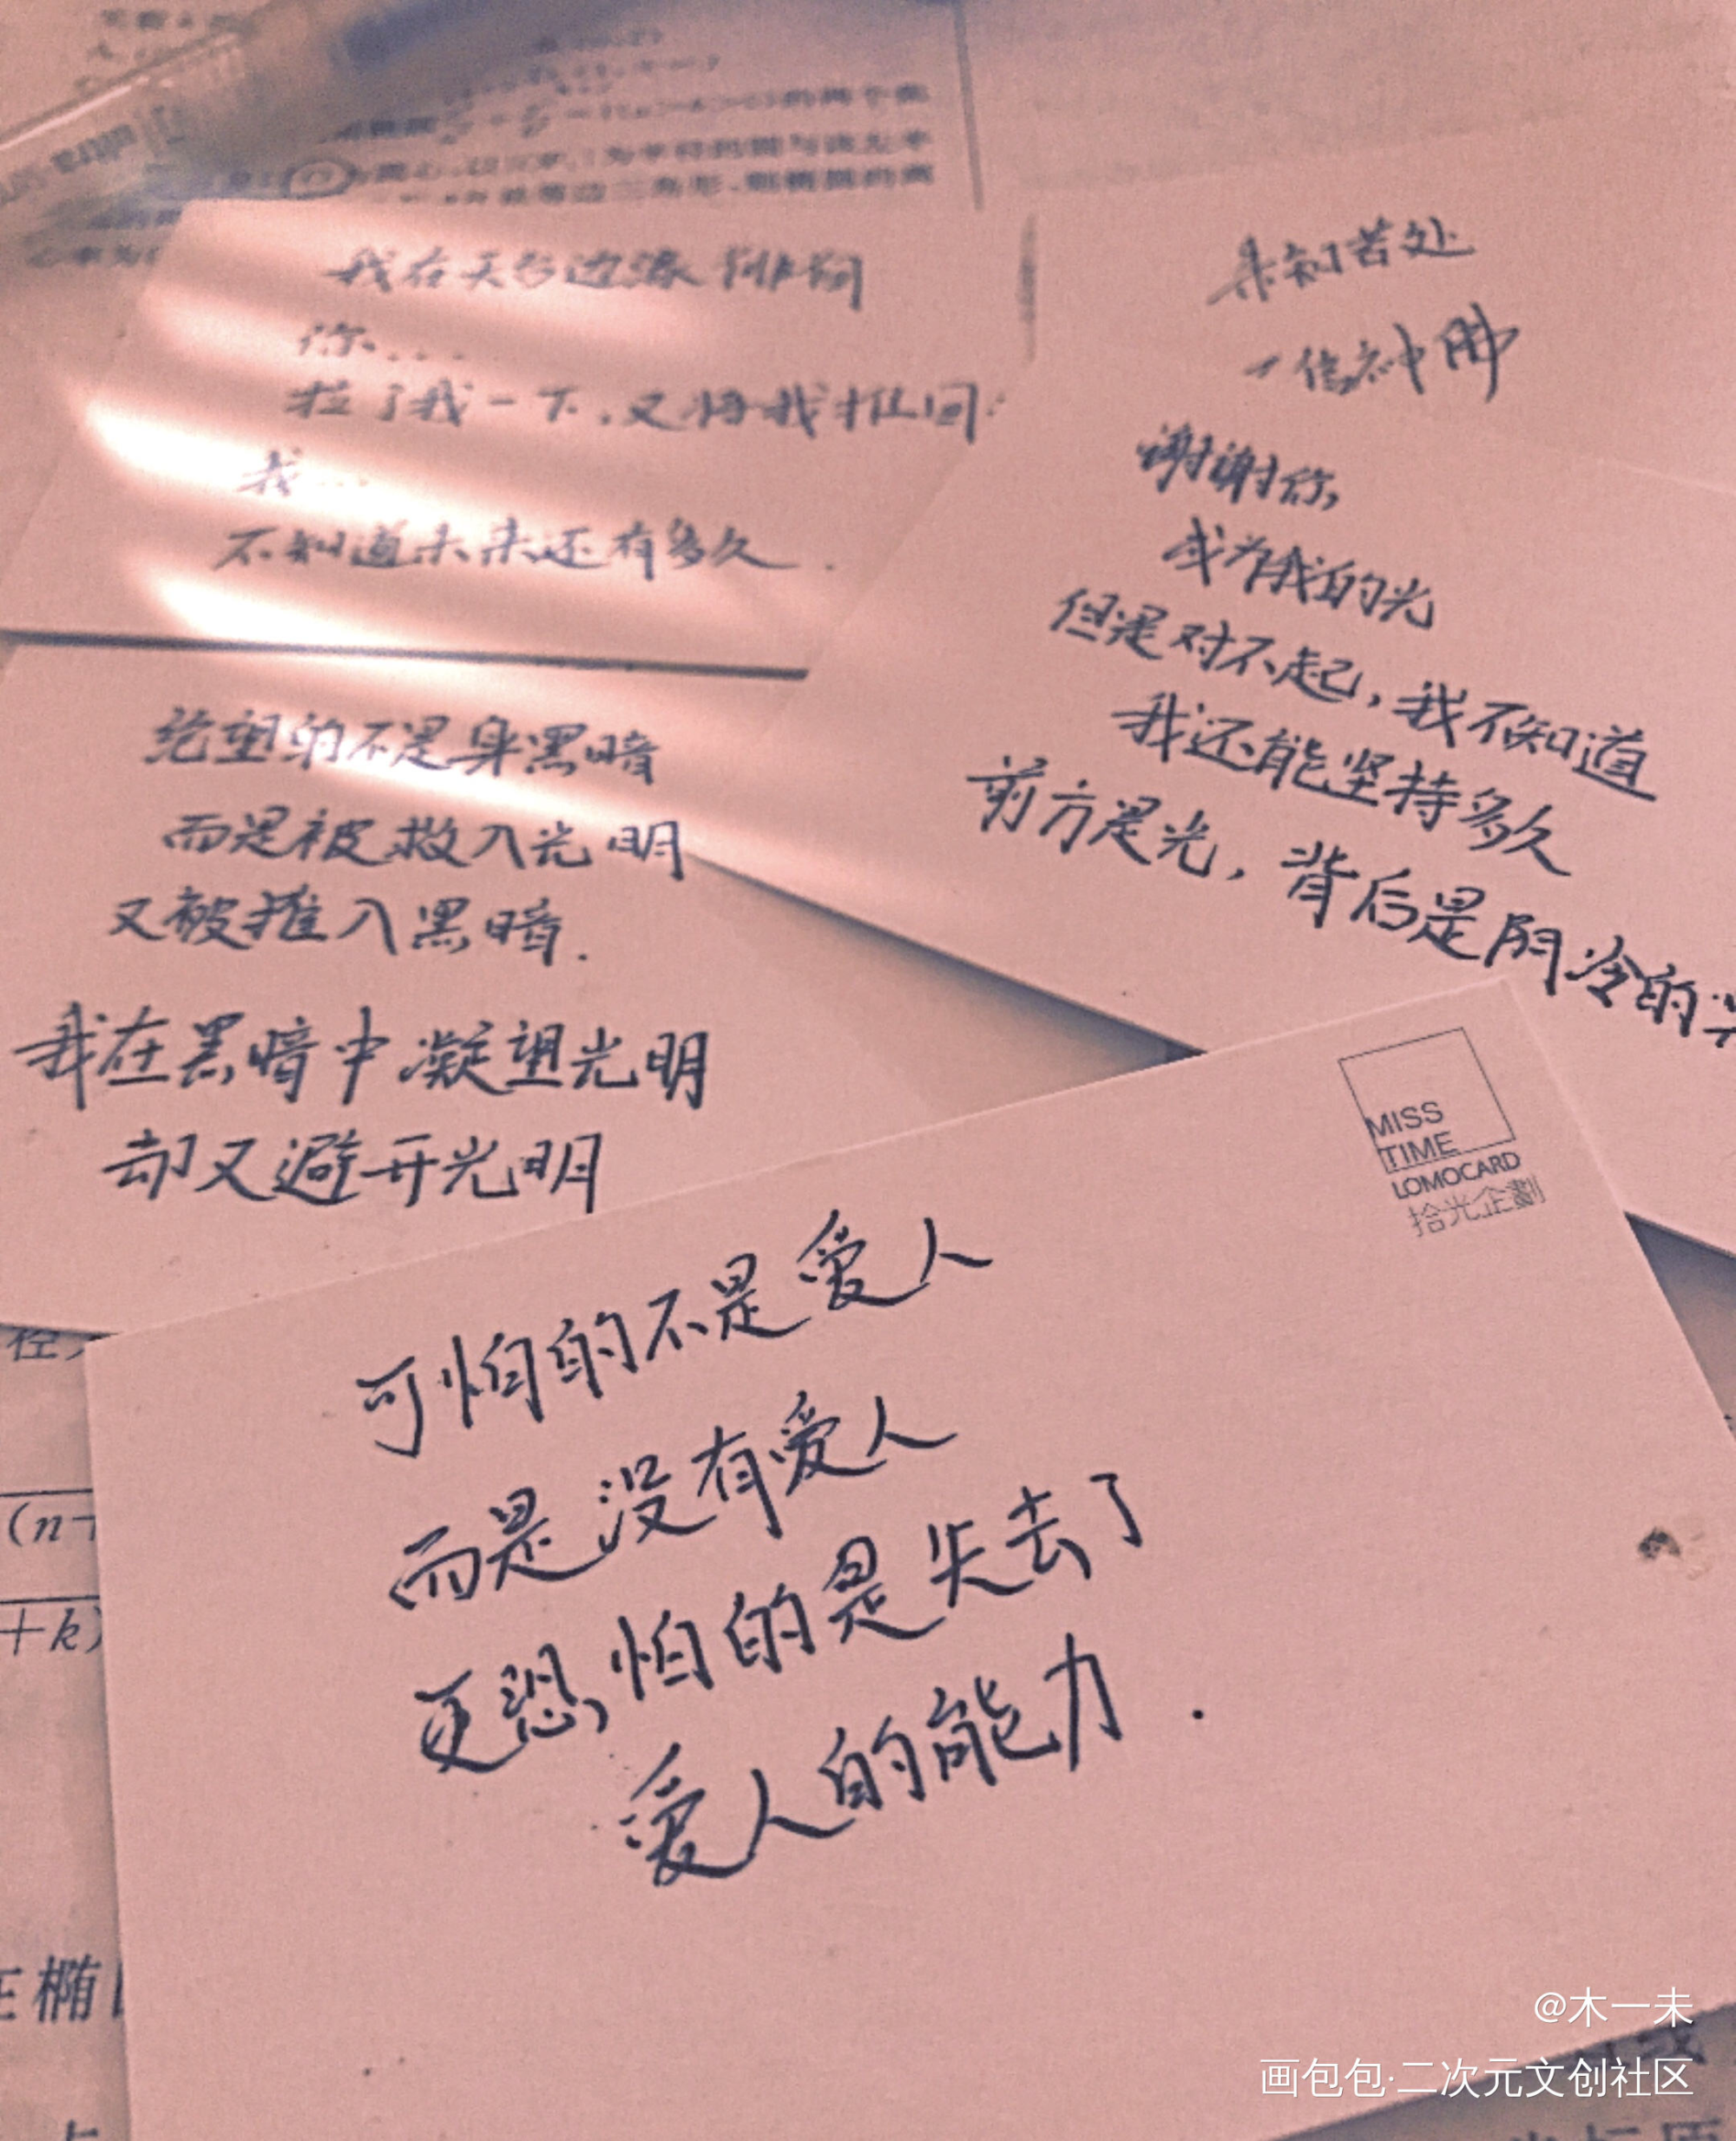 我在天台边缘徘徊
你...
拉了我一下，又将我推回.
我...
不知道未来还有多久.
绝望的不是身黑暗
而是被救入光明
又被推入黑暗.
我在黑暗中凝望光明
却又避开光明
未知苦处
谢谢你,
成为我的光
但是对不起，我不知道
我还能坚持多久
前方是光，背后是阴冷的
MISS
TIME
LOMOCARD
拾光企劃
可怕的不是爱人
而是没有爱人
更恐怕的是失去了
爱人的能力.
径,
(n+
+k)
在椭
@木一未
画包包·二次元文创社区